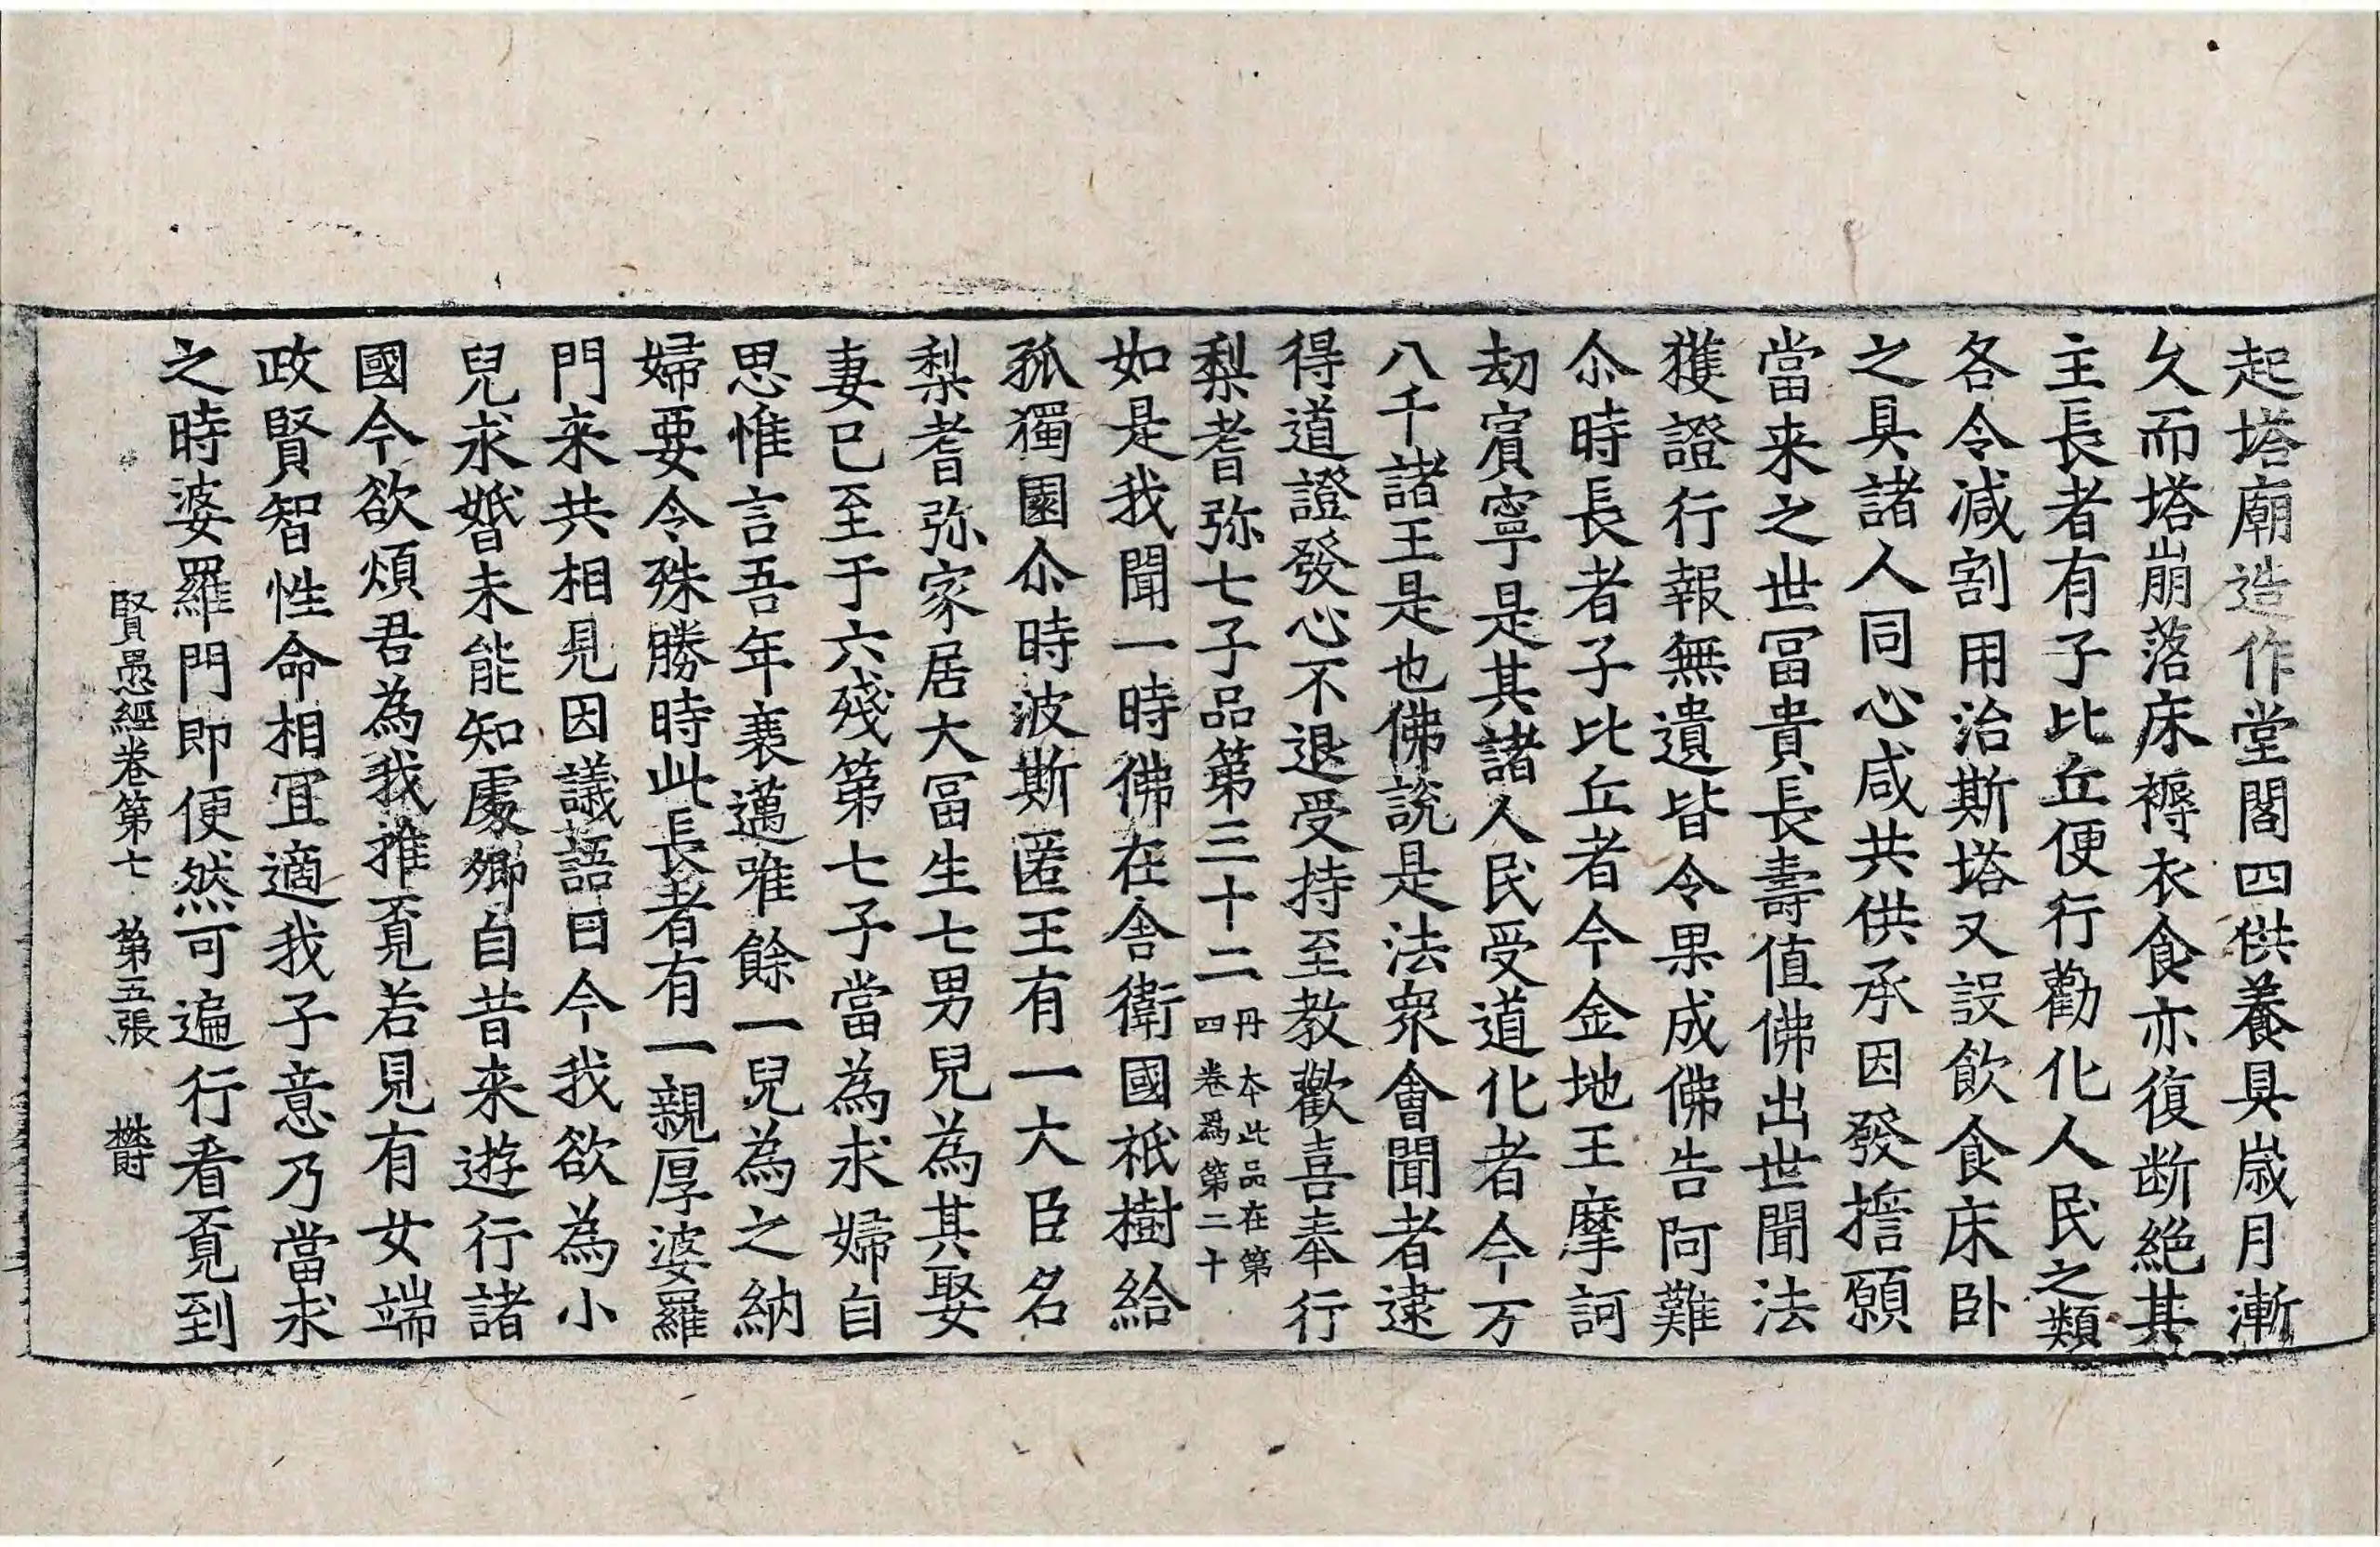 起塔廟造作堂閣四供養具歲月漸
久而塔崩落床褥衣食亦復断絶其
主長者有子比丘便行勸化人民之類
各令减割用治斯塔又設飲食床卧
之具諸人同心咸共供承因發擔願
當来之世冨貴長壽值佛出世聞法
獲證行報無遺皆令果成佛告阿難
尒時長者子比丘者今金地王摩訶
劫賓寧是其諸人民受道化者今万
八千諸王是也佛說是法衆會聞者逮
得道證發心不退受持至教歡喜奉行
梨耆弥七子品第三十二 丹本此品在第四卷爲第二十
如是我聞一時佛在舍衛國祇樹給
孤獨園尒時波斯匿王有一大臣名
梨耆弥家居大冨生七男兒為其娶
妻已至于六殘第七子當為求婦自
思惟言吾年衰邁唯餘一兒為之納
婦要令殊勝時此長者有一親厚婆羅
門来共相見因議語曰今我欲為小
兒求婚未能知處卿自昔来遊行諸
國今欲煩君為我推覔若見有女端
政賢智性命相冝適我子意乃當求
之時婆羅門即便然可遍行看覔到
賢愚經卷第七 第五張 欝